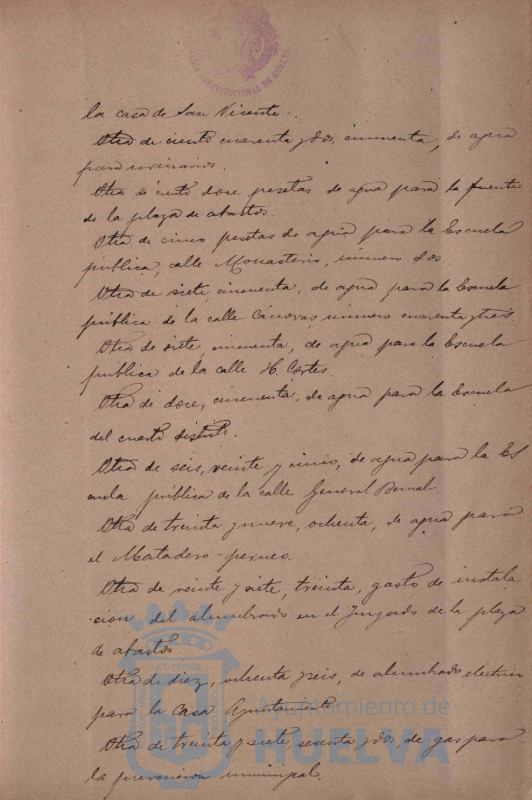 CONSTITUCIONAL DE HUELVA
la casa de San Vicente.
Otra de ciento cuarenta y dos, cincuenta, de agua
para
Otra de ciento doce pesetas de agua para la fuente
de la plaza de abastos.
Otra de cinco pesetas de agua para la Escuela
pública, calle Monasterio, número dos.
Otra de siete, cincuenta, de agua para la Escuela
pública de la calle Cánovas número cuarenta y tres.
Otra de siete, cincuenta, de agua para la Escuela
pública de la calle H. Cortés.
Otra de doce, cincuenta, de agua para la Escuela
del cuarto distrito.
Otra de seis, veinte y cinco, de agua para la Es
cuela pública de la calle General Bernal.
Otra de treinta y nueve, ochenta, de agua para
el Matadero-perneo.
Otra de veinte y siete, treinta, gasto de instala
-cion del alumbrado en el Juzgado de la plaza
de abastos.
Otra de diez, ochenta y seis, de alumbrado electrico
para la Casa Ayuntamiento.
Otra de treinta y siete, sesenta y dos, de gas para
la prevencion municipal.
Ayuntamiento de
HUELVA